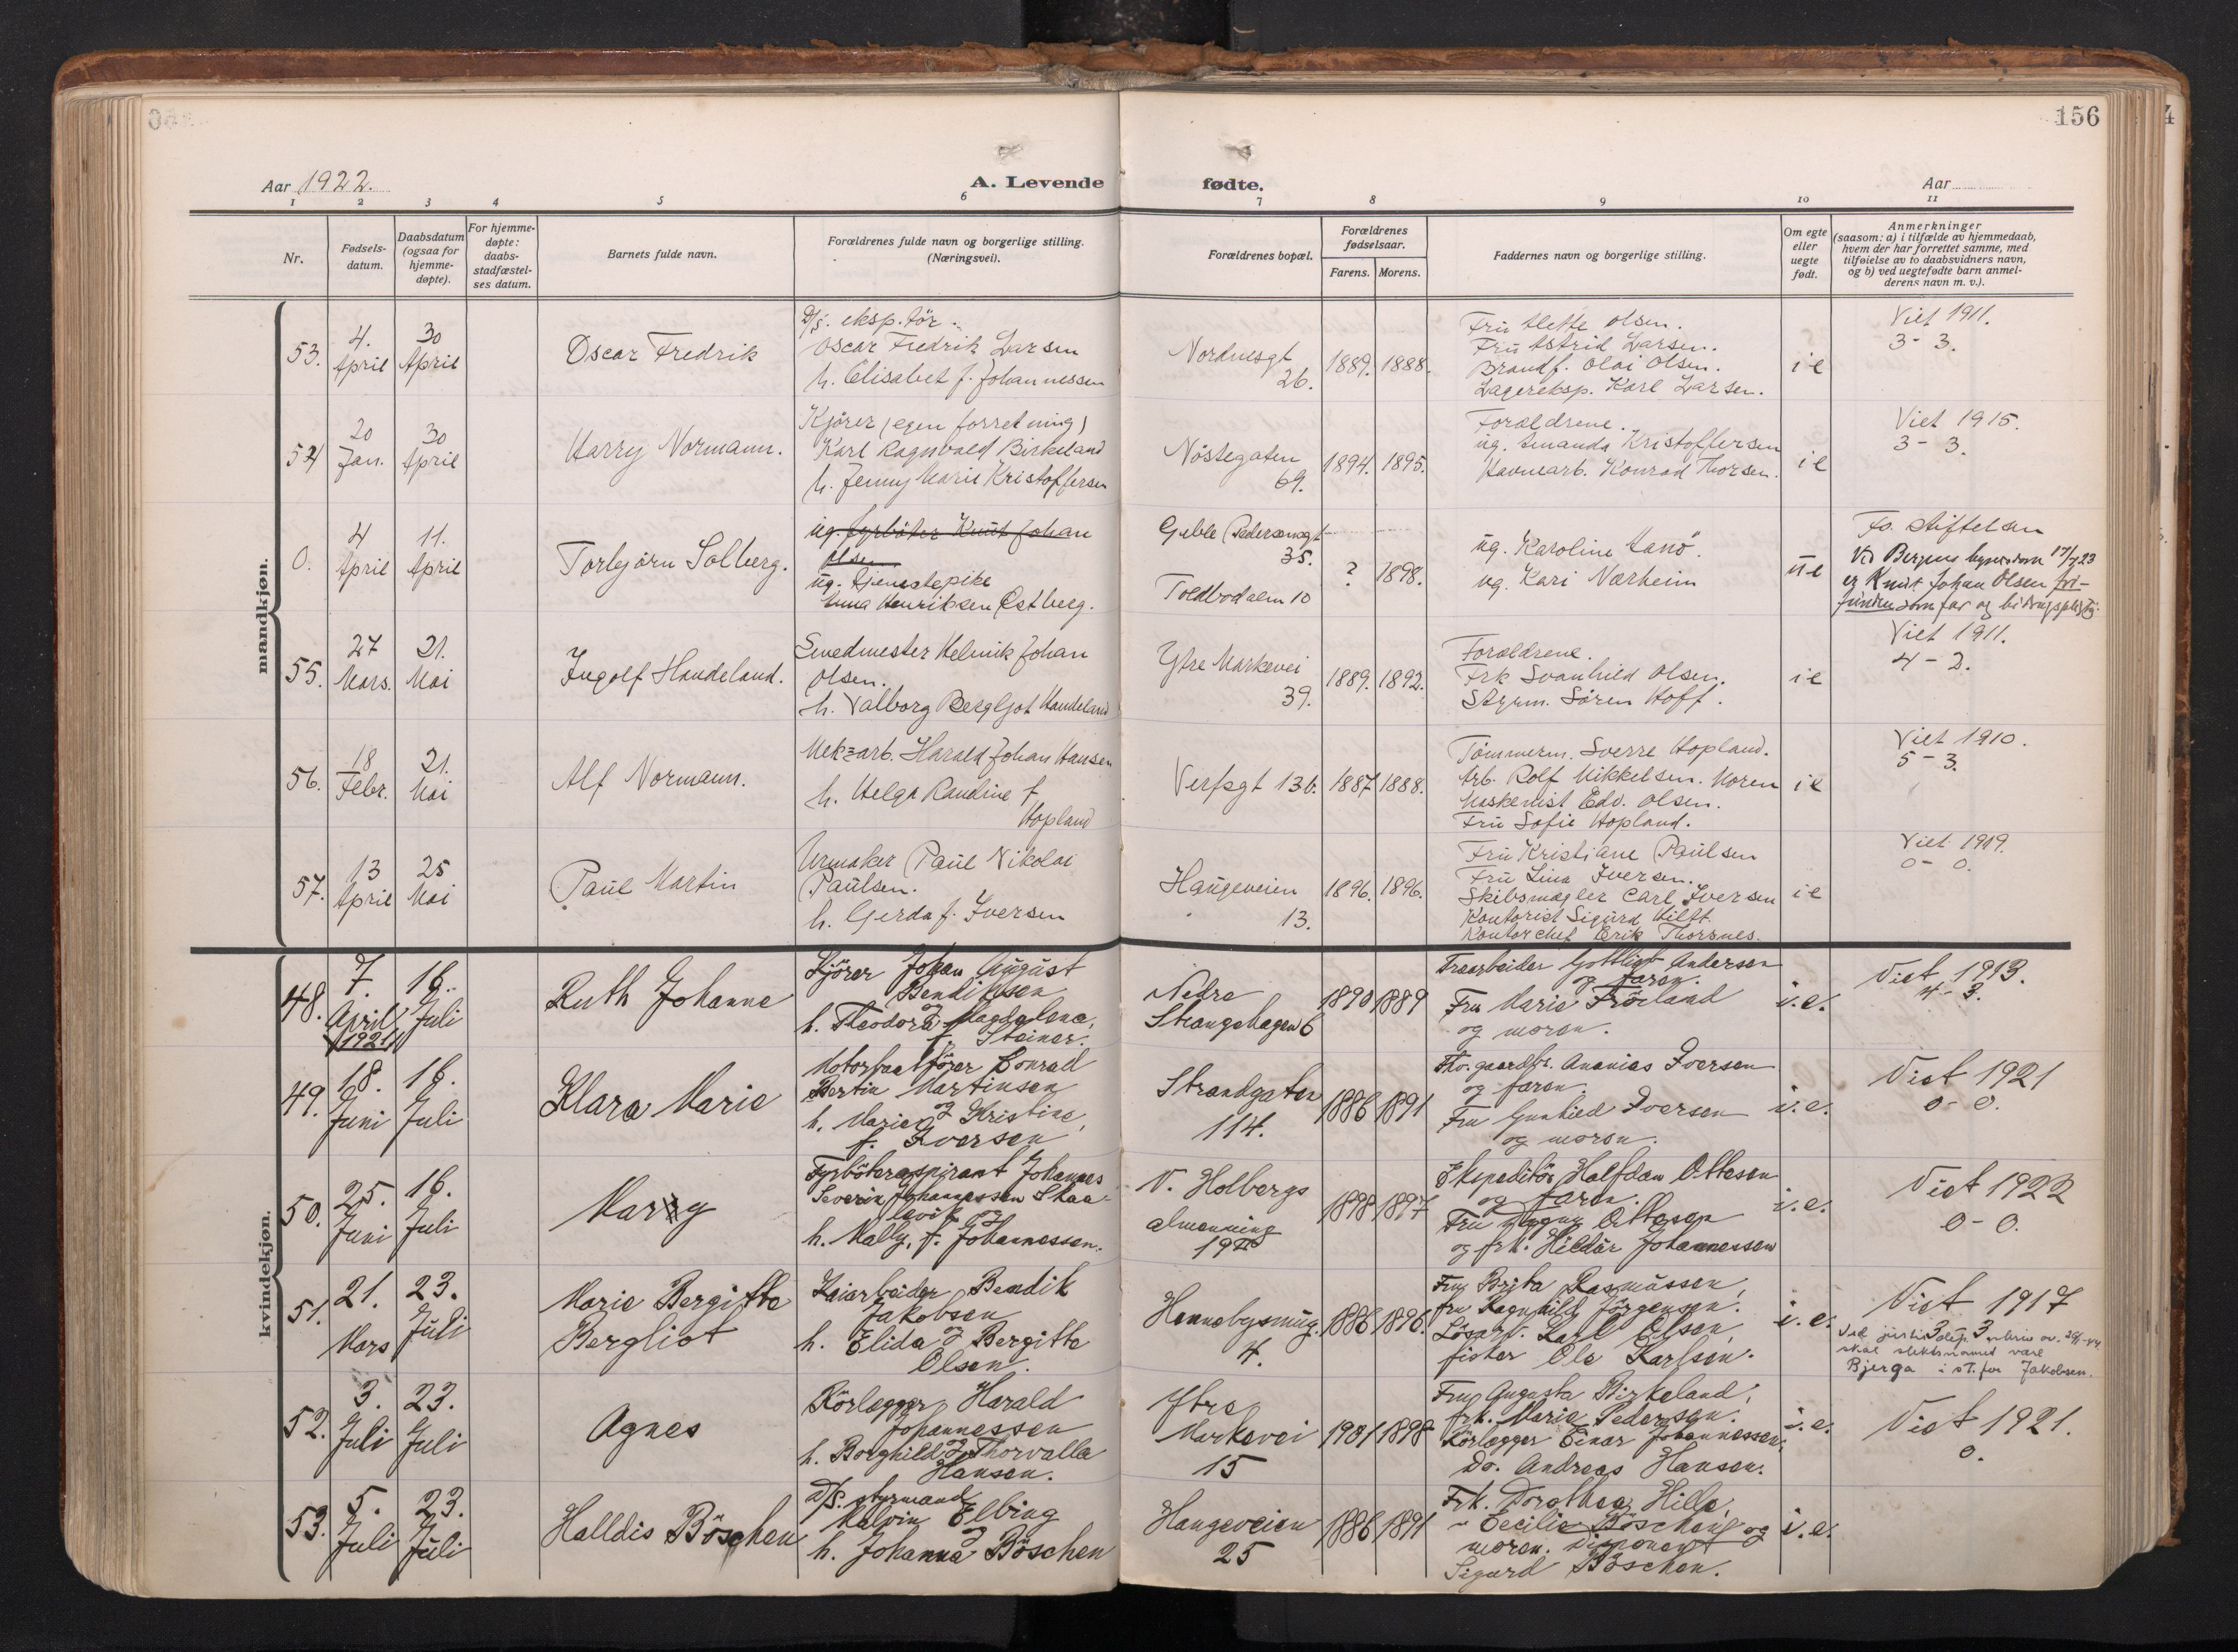 156
Aar 1922.
A. Levende
fødte.
Aar
1
2
3
4
5
6
7
8
9
10
11
Nr.
Fødsels-
datum.
Daabsdatum
(ogsaa for
hjemme-
døpte).
For hjemme-
døpte:
daabs-
stadfæstel-
ses datum.
Barnets fulde navn.
Forældrenes fulde navn og borgerlige stilling.
(Næringsvei).
Forældrenes bopæl.
Forældrenes
fødselsaar.
Farens.
Morens.
Faddernes navn og borgerlige stilling.
Om egte
eller
uegte
født.
Anmerkninger
(saasom: a) i tilfælde av hjemmedaab,
hvem der har forrettet samme, med
tilføielse av to daabsvidners navn,
og b) ved uegtefødte barn anmel-
derens navn m. v.).
mandkjøn.
53.
4.
April
30
April
Oscar Fredrik
D/s. eksp.tør.
Oscar Fredrik Larsen
h. Elisabet f. Johannessen
Nordnesgt
26.
1889.
1888.
Fru Mette Olsen.
Fru Astrid Larsen.
Brandf. Olai Olsen.
Lagereksp. Karl Larsen.
ie
Viet 1911.
3 - 3.
54
20
Jan.
30
April
Harry Normann.
Kjører (egen forretning)
Karl Ragnvald Birkeland
h. Jenny Marie Kristoffersen
Nøstegaten
69.
1894.
1895.
Forældrene.
ug. Amanda Kristoffersen
Havnearb. Konrad Thorsen.
ie
Viet 1915.
3 - 3.
0.
4
April
11.
April
Torbjørn Solberg.
ug. fyrbøter Knut Johan
Olsen
ug. tjenestepike
Anna Henriksen Østberg.
Geble Pedersensgt
35.
Toldbodalm 10
?
1898.
ug. Karoline Hanø.
ug. Kari Nærheim
ue
Fø. stiftelsen
Ved Bergens byretsdom 17/7 23
er Knut Johan Olsen fri-
funden som far og bidragspligtig.
55.
27
Mars.
21.
Mai
Ingolf Handeland.
Smedmester Helmik Johan
Olsen.
h. Valborg Bergljot Handeland
Ytre Markevei
39.
1889.
1892.
Forældrene.
Frk Svanhild Olsen.
Styrm. Søren Hoff.
ie
Viet 1911.
4 - 2.
56.
18
Febr.
21.
Mai
Alf Normann.
Mek. arb. Harald Johan Hansen
h. Helga Randine f
Hopland
Verfsgt 13b.
1887
1888.
Tømmerm. Sverre Hopland.
Arb. Rolf Mikkelsen. Moren
Maskenist Edv. Olsen.
Fru Sofie Hopland.
ie
Viet 1910.
5 - 3.
57.
13
April
25
Mai
Paul Martin
Urmaker Paul Nikolai
Paulsen.
h. Gerda f. Iversen
Haugeveien
13.
1896.
1896.
Fru Kristiane Paulsen
Fru Lina Iversen.
Skibsmægler Carl Iversen
Kontorist Sigurd Hilft.
Kontorchef Erik Thorsnes.
ie
Viet 1919.
0 - 0.
kvindekjøn.
48.
7.
April
1921
16.
Juli
Ruth Johanne
Kjører Johan August
Bendiksen
og
h. Theodora Magdalena,
f. Steiner.
Nedre
Strangehagen 6
1890
1889
Træarbeider Gottligt Andersen
og faren.
Fru Marie Frøiland
og moren.
i.e.
Viet 1913.
4 - 3.
49.
18.
Juni
16.
Juli
Klara Marie
Motorbaatfører Conrad
Bertin Martinsen
og
h. Marie Kristine,
f. Iversen
Strandgaten
114.
1886
1891
Fhv. gaardbr. Ananias Iversen
og faren.
Fru Gunhild Iversen
og moren.
i.e.
Viet 1921
0 - 0.
50.
25.
Juni
16.
Juli
Marry
Fyrbøteraspirant Johannes
Severin Johannessen Skaa-
levik og
h. Mally, f. Johannessen.
N. Holbergs
almenning
19 II
1898
1897
Ekspeditør Halfdan Ottesen
og faren.
Fru Ottesen
og frk. Hildur Johannessen
i.e.
Viet 1922
0 - 0.
51.
21.
Mars
23.
Juli
Marie Bergitte
Bergliot
Kaiarbeider Bendik
Jakobsen
og
h. Elida Bergitte
Olsen.
Hennebysmug.
4.
1886
1896.
Fru Brita Rasmussen,
fru Ragnhild Jørgensen.
Løsarb. Karl Olsen,
fisker Ole Karlsen.
i.e.
Viet 1917
3 - 3
Ved justisdep. skriv av
skal slektsnamnet være
Bjerga i st. for Jakobsen.
52.
3.
Juli
23.
Juli
Agnes
Rørlægger Harald
Johannessen
og
h. Borghild Thorvalla
Hansen.
Ytre
Markevei
15
1901
1898
Fru Augusta Birkeland,
frk. Marie Pedersen.
Rørlægger Einar Johannessen,
Do. Andreas Hansen.
i.e.
Viet 1921.
0.
53.
5.
Juli
23.
Juli
Halldis Bøschen
D/S. styrmand
Malvin Elbing
og
h. Johanna Bøschen
Haugeveien
25
1886
1891
Frk. Dorothea Hille,
" Cecilie Bøschen og
moren. Disponent
Sigurd Bøschen.
i.e.